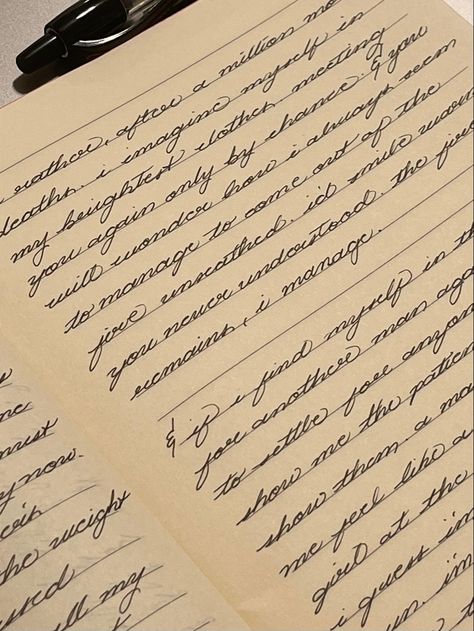 rather, after a million mo
deaths, i imagine myself in
my brightest clothes, meeting
you again only by chance. & you
will wonder how i always seem
to manage to come out of the
fire unscathed. i'd smile
you never understood. the fire
remains, i manage.
& if i find myself in th
for another man aga
to settle for anyon
show me the patien
show them a ma
me feel like a
girl at the
i guess in
un i'm
must
y now.
the weight
ll my